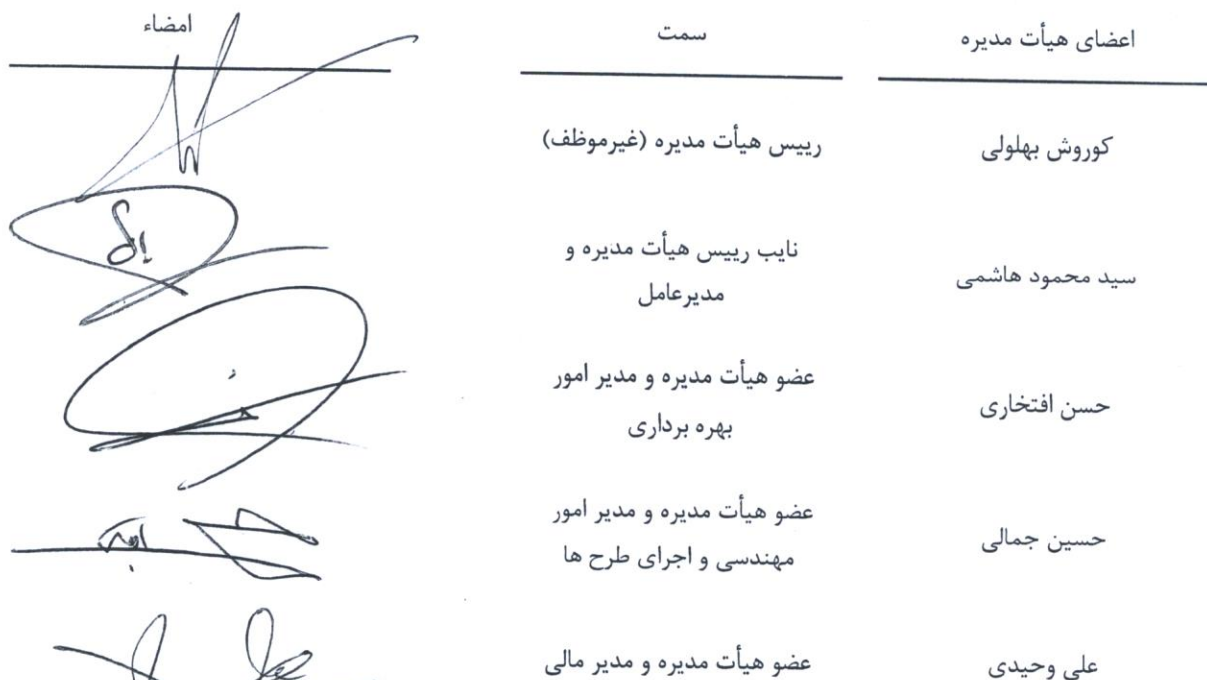 اعضای هیأت مدیره سمت امضاء
کوروش بهلولی رییس هیأت مدیره (غیرموظف)
سید محمود هاشمی نایب رییس هیأت مدیره و
مدیرعامل
حسن افتخاری عضو هیأت مدیره و مدیر امور
بهره برداری
حسین جمالی عضو هیأت مدیره و مدیر امور
مهندسی و اجرای طرح ها
علی وحیدی عضو هیأت مدیره و مدیر مالی